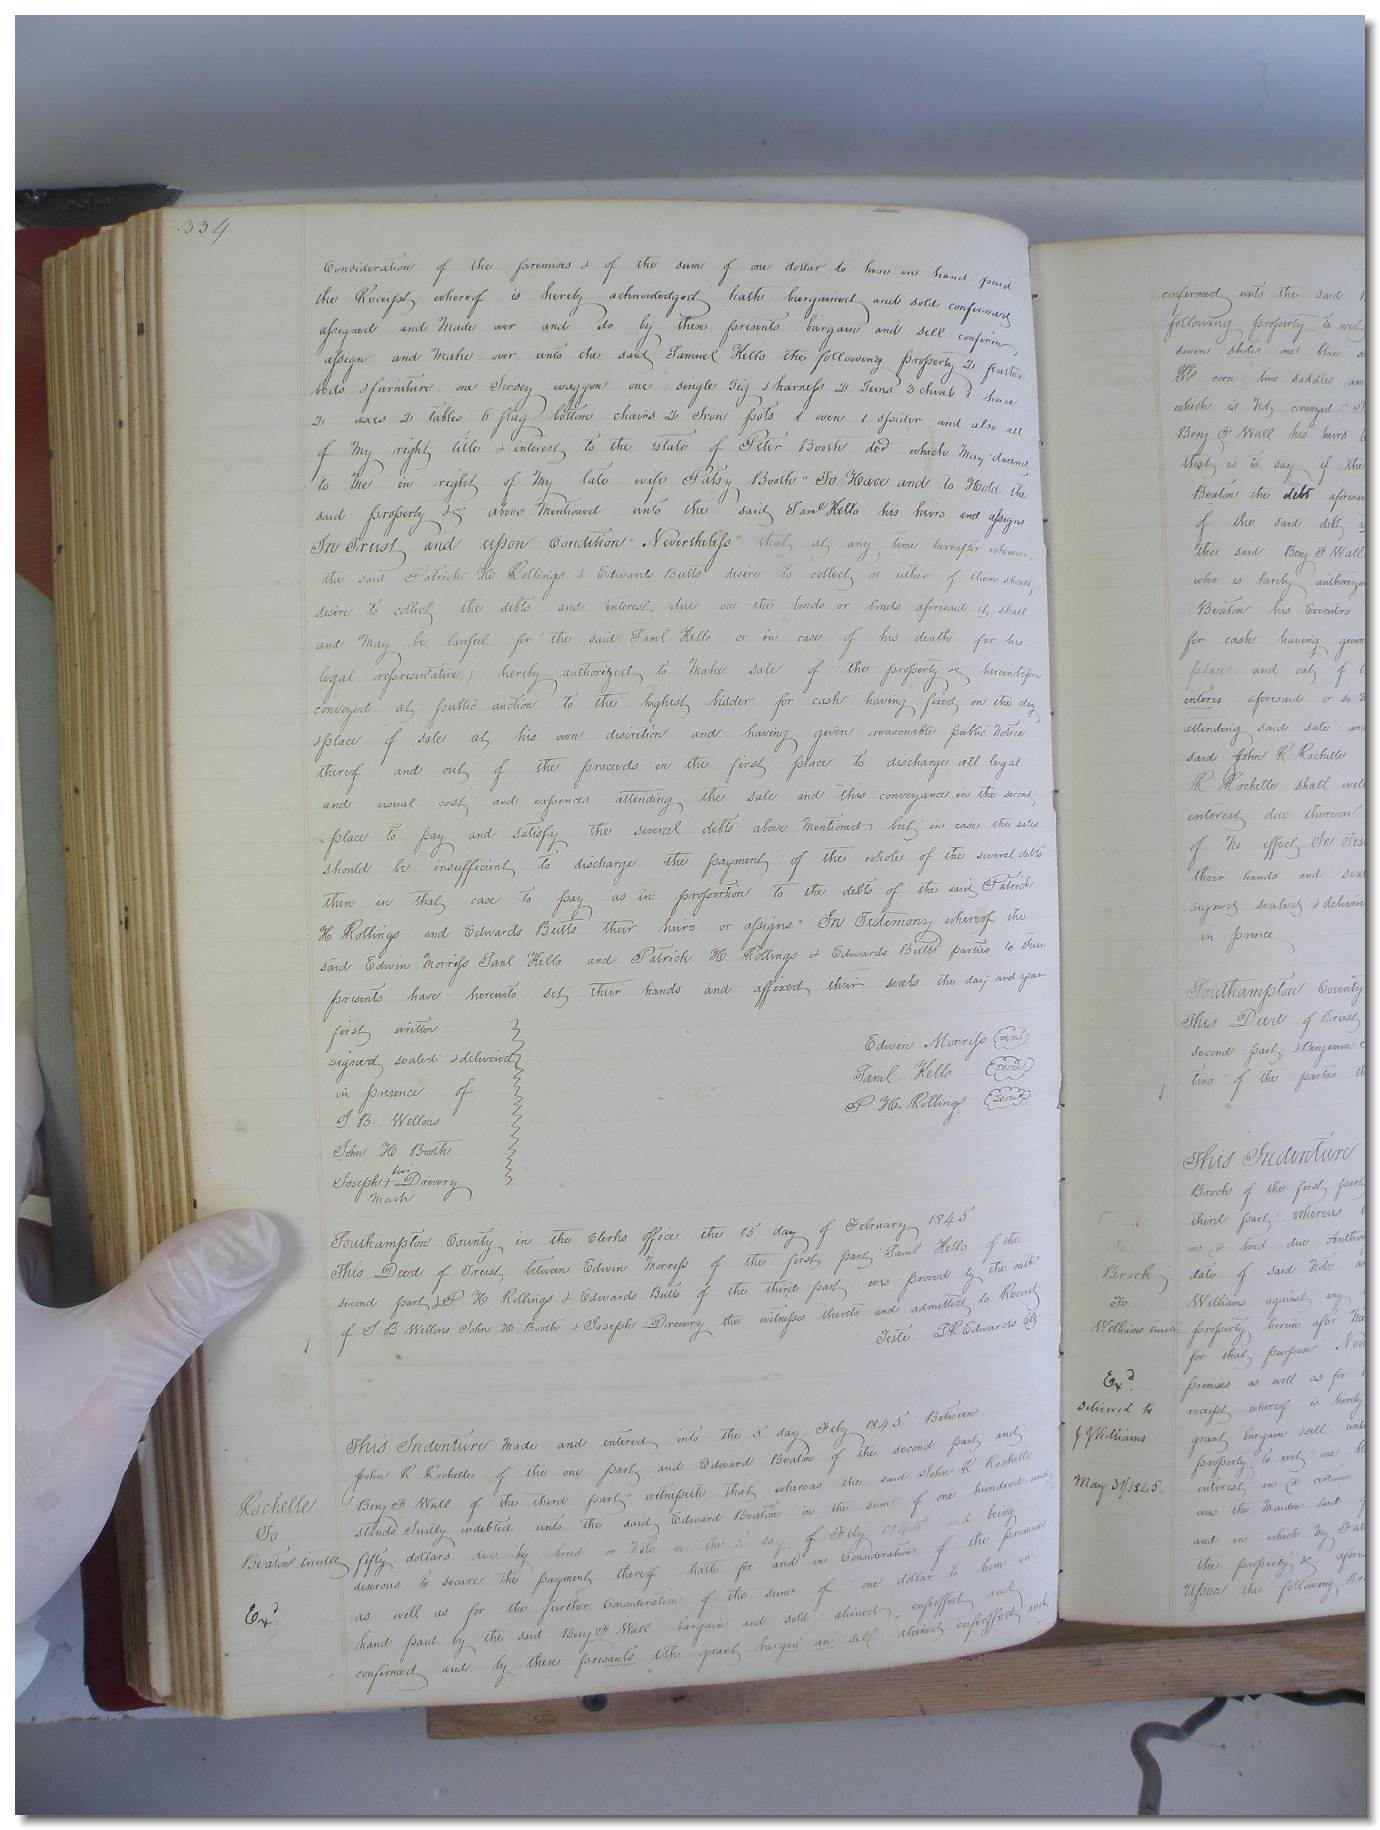 334
Consideration of the premises & of the sum of one dollar to him in hand paid
the Receipt whereof is hereby acknowledged hath bargained and sold confirmed
assigned and Made over and do by these presents bargain and sell confirm,
assign and Make over unto the said Samuel Kello the following property 2 feather
beds & furniture one Jersey waggon one single Gig & harness 2 Guns 3 1 horse
2 axes 2 tables 6 flag bottom chairs 2 Iron pots 1 oven 1 spider and also all
of My right title & interest to the estate of Peter Booth decd which May
to Me in right of My late wife Patsy Booth" To Have and to Hold the
said property &c above Mentioned unto the said Saml Kello his heirs and assigns
In Trust and upon Condition" Nevertheless" that at any time hereafter whenever
the said Patrick H Rollings & Edwards Butts desire to collect or either of them should
desire to collect the debts and interest due on the bonds or bonds aforesaid it shall
and May be lawful for the said Saml Kello or in case of his death for his
legal representative hereby authorized to Make sale of the property &c hereinbefore
conveyed at public auction to the highest bidder for cash having fixed on the day
& place of sale at his own discrition and having given reasonable public Notice
thereof and out of the proceeds in the first place to discharge all legal
and usual cost and expences attending the sale and this conveyance in the second
place to pay and satisfy the several debts above Mentioned but in case the sales
should be insufficient to discharge the payment of the whole of the several debts
then in that case to pay as in proportion to the debts of the said Patrick
H Rollings and Edwards Butts their heirs or assigns" In Testimony whereof the
said Edwin Morriss Saml Kello and Patrick H Rollings & Edwards Butts parties to these
presents have hereunto set their hands and affixed their seals the day and year
first written
signed sealed & delivered
in presence of
J B. Wellons
John H Booth
Joseph + his Drewry
Mark
Edwin Morriss seal
Saml Kello seal
P H. Rollings seal
Southampton County in the Clerks office the 15 day of February 1845
This Deed of Trust between Edwin Morriss of the first part Saml Kello of the
second part & P H Rollings & Edwards Butts of the third part was proved by the oath
of J B Wellons John H Booth & Joseph Drewry the witnesses thereto and admitted to Record
Teste L R Edwards Clk
This Indenture Made and entered into the 5 day Feby 1845 Between
John R Rochelle of the one part and Edward Beaton of the second part and
Benj F Wall of the third part witnesseth that whereas the said John R Rochelle
stands Justly indebted unto the said Edward Beaton in the sum of one hundred and
fifty dollars due by bond or Note on the 5 day of Feby 1845 and being
desirous to secure the payment thereof hath for and in Consideration of the premises
as well as for the further Consideration of the sum of one dollar to him in
hand paid by the said Benj F Wall bargain and sold aliened enfeoffed and
confirmed and by these presants doth grant bargin an sell aliened enfeoffed and
Rochelle
To
Beaton
Exd
confirmed unto the said
following property to wit
seven shotes one blue
corn two saddles
which is Not conveyed
Benj F Wall his heirs
that is to say if the
Beaton the debt
of the said debt
the said Benj F Wall
who is hereby
Beaton his Executors
for cash having
place and out of
interes aforesaid or so
attending said sale
said John R Rochelle
R Rochelle shall
interest due thereon
of No effect In
their hands and
signed sealed &
in
Southampton County
This Deed of Trust
second part & Benjamin
two of the parties
This Indenture
Brock of the first part
third part whereas
in a bond due
date of said Note
Williams against any
property herein after
for that purpose
premises as well as for
receipt whereof is hereby
grant bargain sell
property to wit one
interest in a certain
was the Maiden land
and in which My
the property &c
Upon the following
To
Brock
To
Williams
Exd
Delivered to
J Williams
May 31/1845.